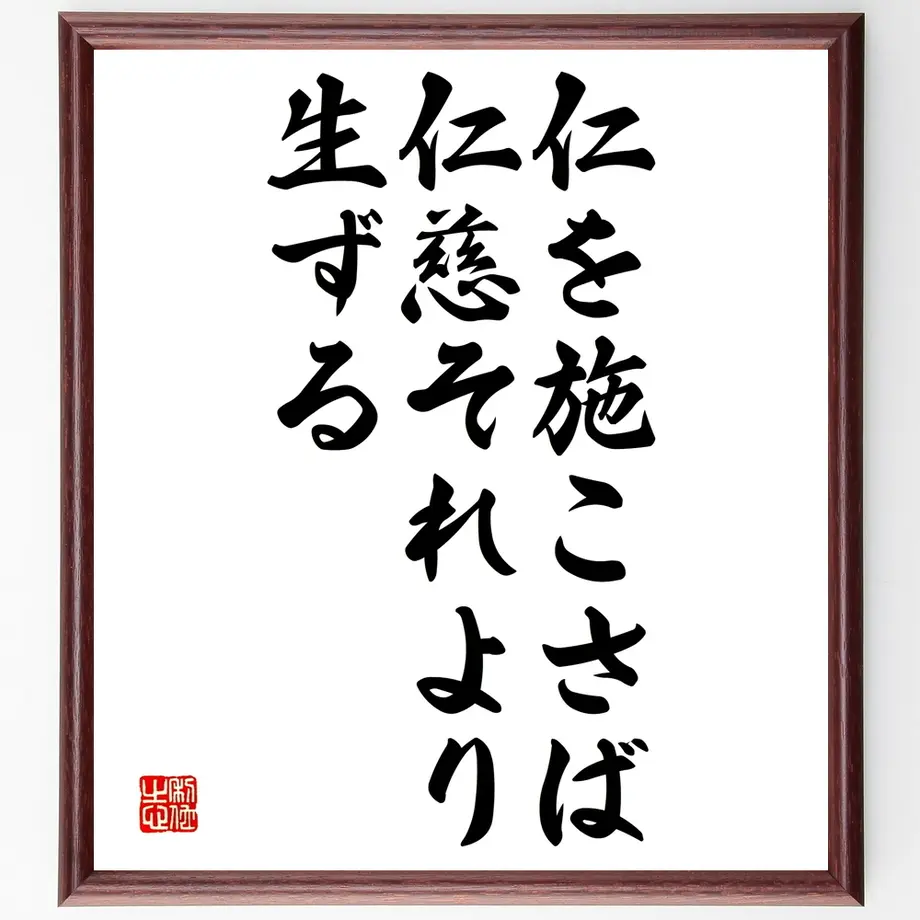 仁を施こさば
仁慈それより
生ずる